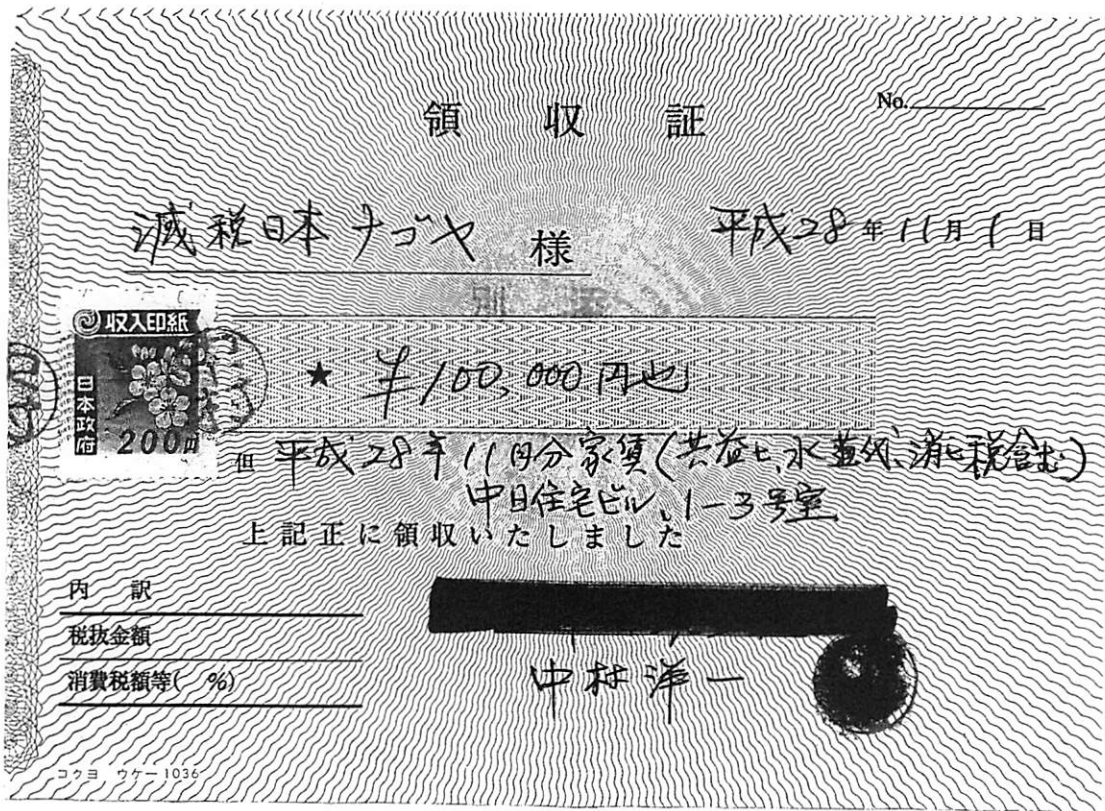 領収証
No.
減税日本ナゴヤ 様 平成28年11月1日
収入印紙
日本政府
200円
★ ¥100,000円也
但 平成28年11月分家賃(共益ヒ、水道代、消ヒ税含む)
中日住宅ビル、1-3号室
上記正に領収いたしました
内訳
税抜金額
消費税額等( %)
中林洋一
コクヨ ウケ-1036